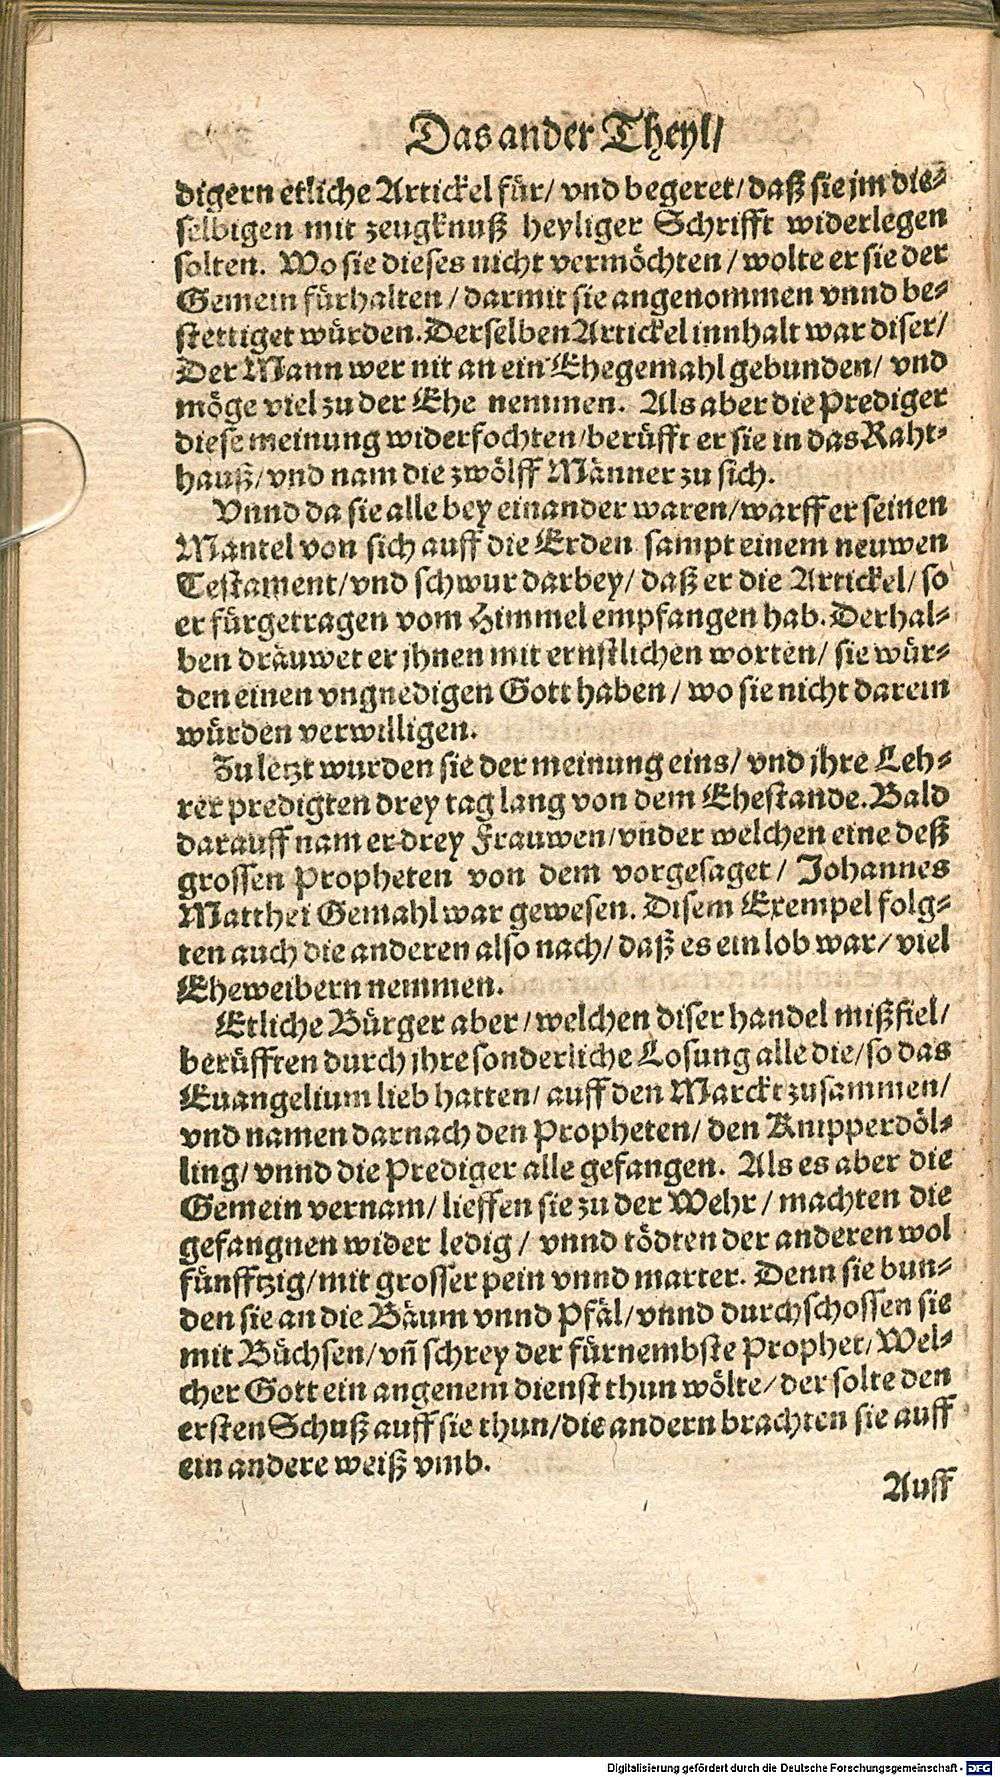 Das ander Theyl/
digern etliche Artickel für/ vnd begeret/ daß sie jm die-
selbigen mit zeugknuß heyliger Schrifft widerlegen
solten. Wo sie dieses nicht vermöchten / wolte er sie der
Gemein fürhalten / darmit sie angenommen vnnd be-
stettiget würden. Derselben Artickel innhalt war diser/
Der Mann wer nit an ein Ehegemahl gebunden/ vnd
möge viel zu der Ehe nemmen. Als aber die Prediger
diese meinung widerfochten/ berüfft er sie in das Raht-
hauß/ vnd nam die zwölff Männer zu sich.
Vnnd da sie alle bey einander waren/ warff er seinen
Mantel von sich auff die Erden sampt einem neuwen
Testament/ vnd schwur darbey/ daß er die Artickel/ so
er fürgetragen vom Himmel empfangen hab. Derhal-
ben dräuwet er jhnen mit ernstlichen worten/ sie wür-
den einen vngnedigen Gott haben / wo sie nicht darein
würden verwilligen.
Zu letzt wurden sie der meinung eins/ vnd jhre Leh-
rer predigten drey tag lang von dem Ehestande. Bald
darauff nam er drey Frauwen/ vnder welchen eine deß
grossen Propheten von dem vorgesaget / Johannes
Matthei Gemahl war gewesen. Disem Exempel folg-
ten auch die anderen also nach/ daß es ein lob war/ viel
Eheweibern nemmen.
Etliche Bürger aber / welchen diser handel mißfiel/
berüfften durch jhre sonderliche Losung alle die/ so das
Euangelium lieb hatten/ auff den Marckt zusammen/
vnd namen darnach den Propheten/ den Knipperdöl-
ling/ vnnd die Prediger alle gefangen. Als es aber die
Gemein vernam/ lieffen sie zu der Wehr / machten die
gefangnen wider ledig / vnnd tödten der anderen wol
fünfftzig/ mit grosser pein vnnd marter. Denn sie bun-
den sie an die Bäum vnnd Pfäl/ vnnd durchschossen sie
mit Büchsen/ vñ schrey der fürnembste Prophet/ Wel-
cher Gott ein angenem dienst thun wölte/ der solte den
ersten Schuß auff sie thun/ die andern brachten sie auff
ein andere weiß vmb.
Auff
Digitalisierung gefördert durch die Deutsche Forschungsgemeinschaft - DFG